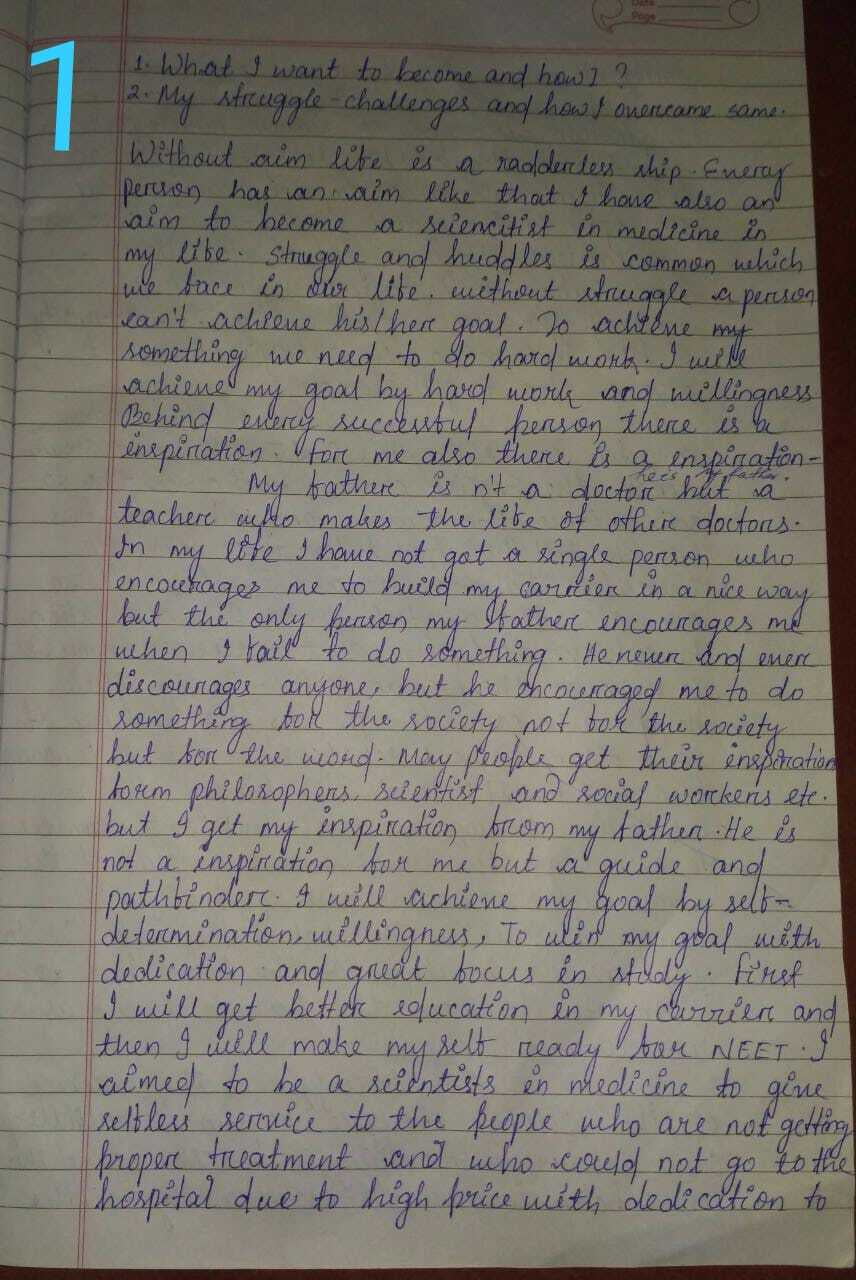 Date
Page
1
1. What I want to become and how I ?
2. My struggle-challenges and how I overcame same.
Without aim life is a radderless ship. Every
person has an aim like that I have also an
aim to become a sciencitist in medicine in
my life. Struggle and huddles is common which
we face in our life. without struggle a person
can't achieve his/her goal. To achieve my
something we need to do hard work. I will
achieve my goal by hard work and willingness
Behind every successful person there is a
inspiration. For me also there is a inspiration-
he is my father.
My father is n't a doctor but a
teacher who makes the life of other doctors.
In my life I have not got a single person who
encourages me to build my carrier in a nice way
but the only person my father encourages me
when I fail to do something. He never and ever
discourages anyone, but he encouraged me to do
something for the society not for the society
but for the word. May people get their inspiration
form philosophers, scientist and social workers etc.
but I get my inspiration from my father. He is
not a inspiration for me but a guide and
pathfinder. I will achieve my goal by self-
determination, willingness, To win my goal with
dedication and great focus in study. First
I will get better education in my carrier and
then I will make my self ready for NEET. I
aimed to be a scientists in medicine to give
selfless service to the people who are not getting
proper treatment and who could not go to the
hospital due to high price with dedication to